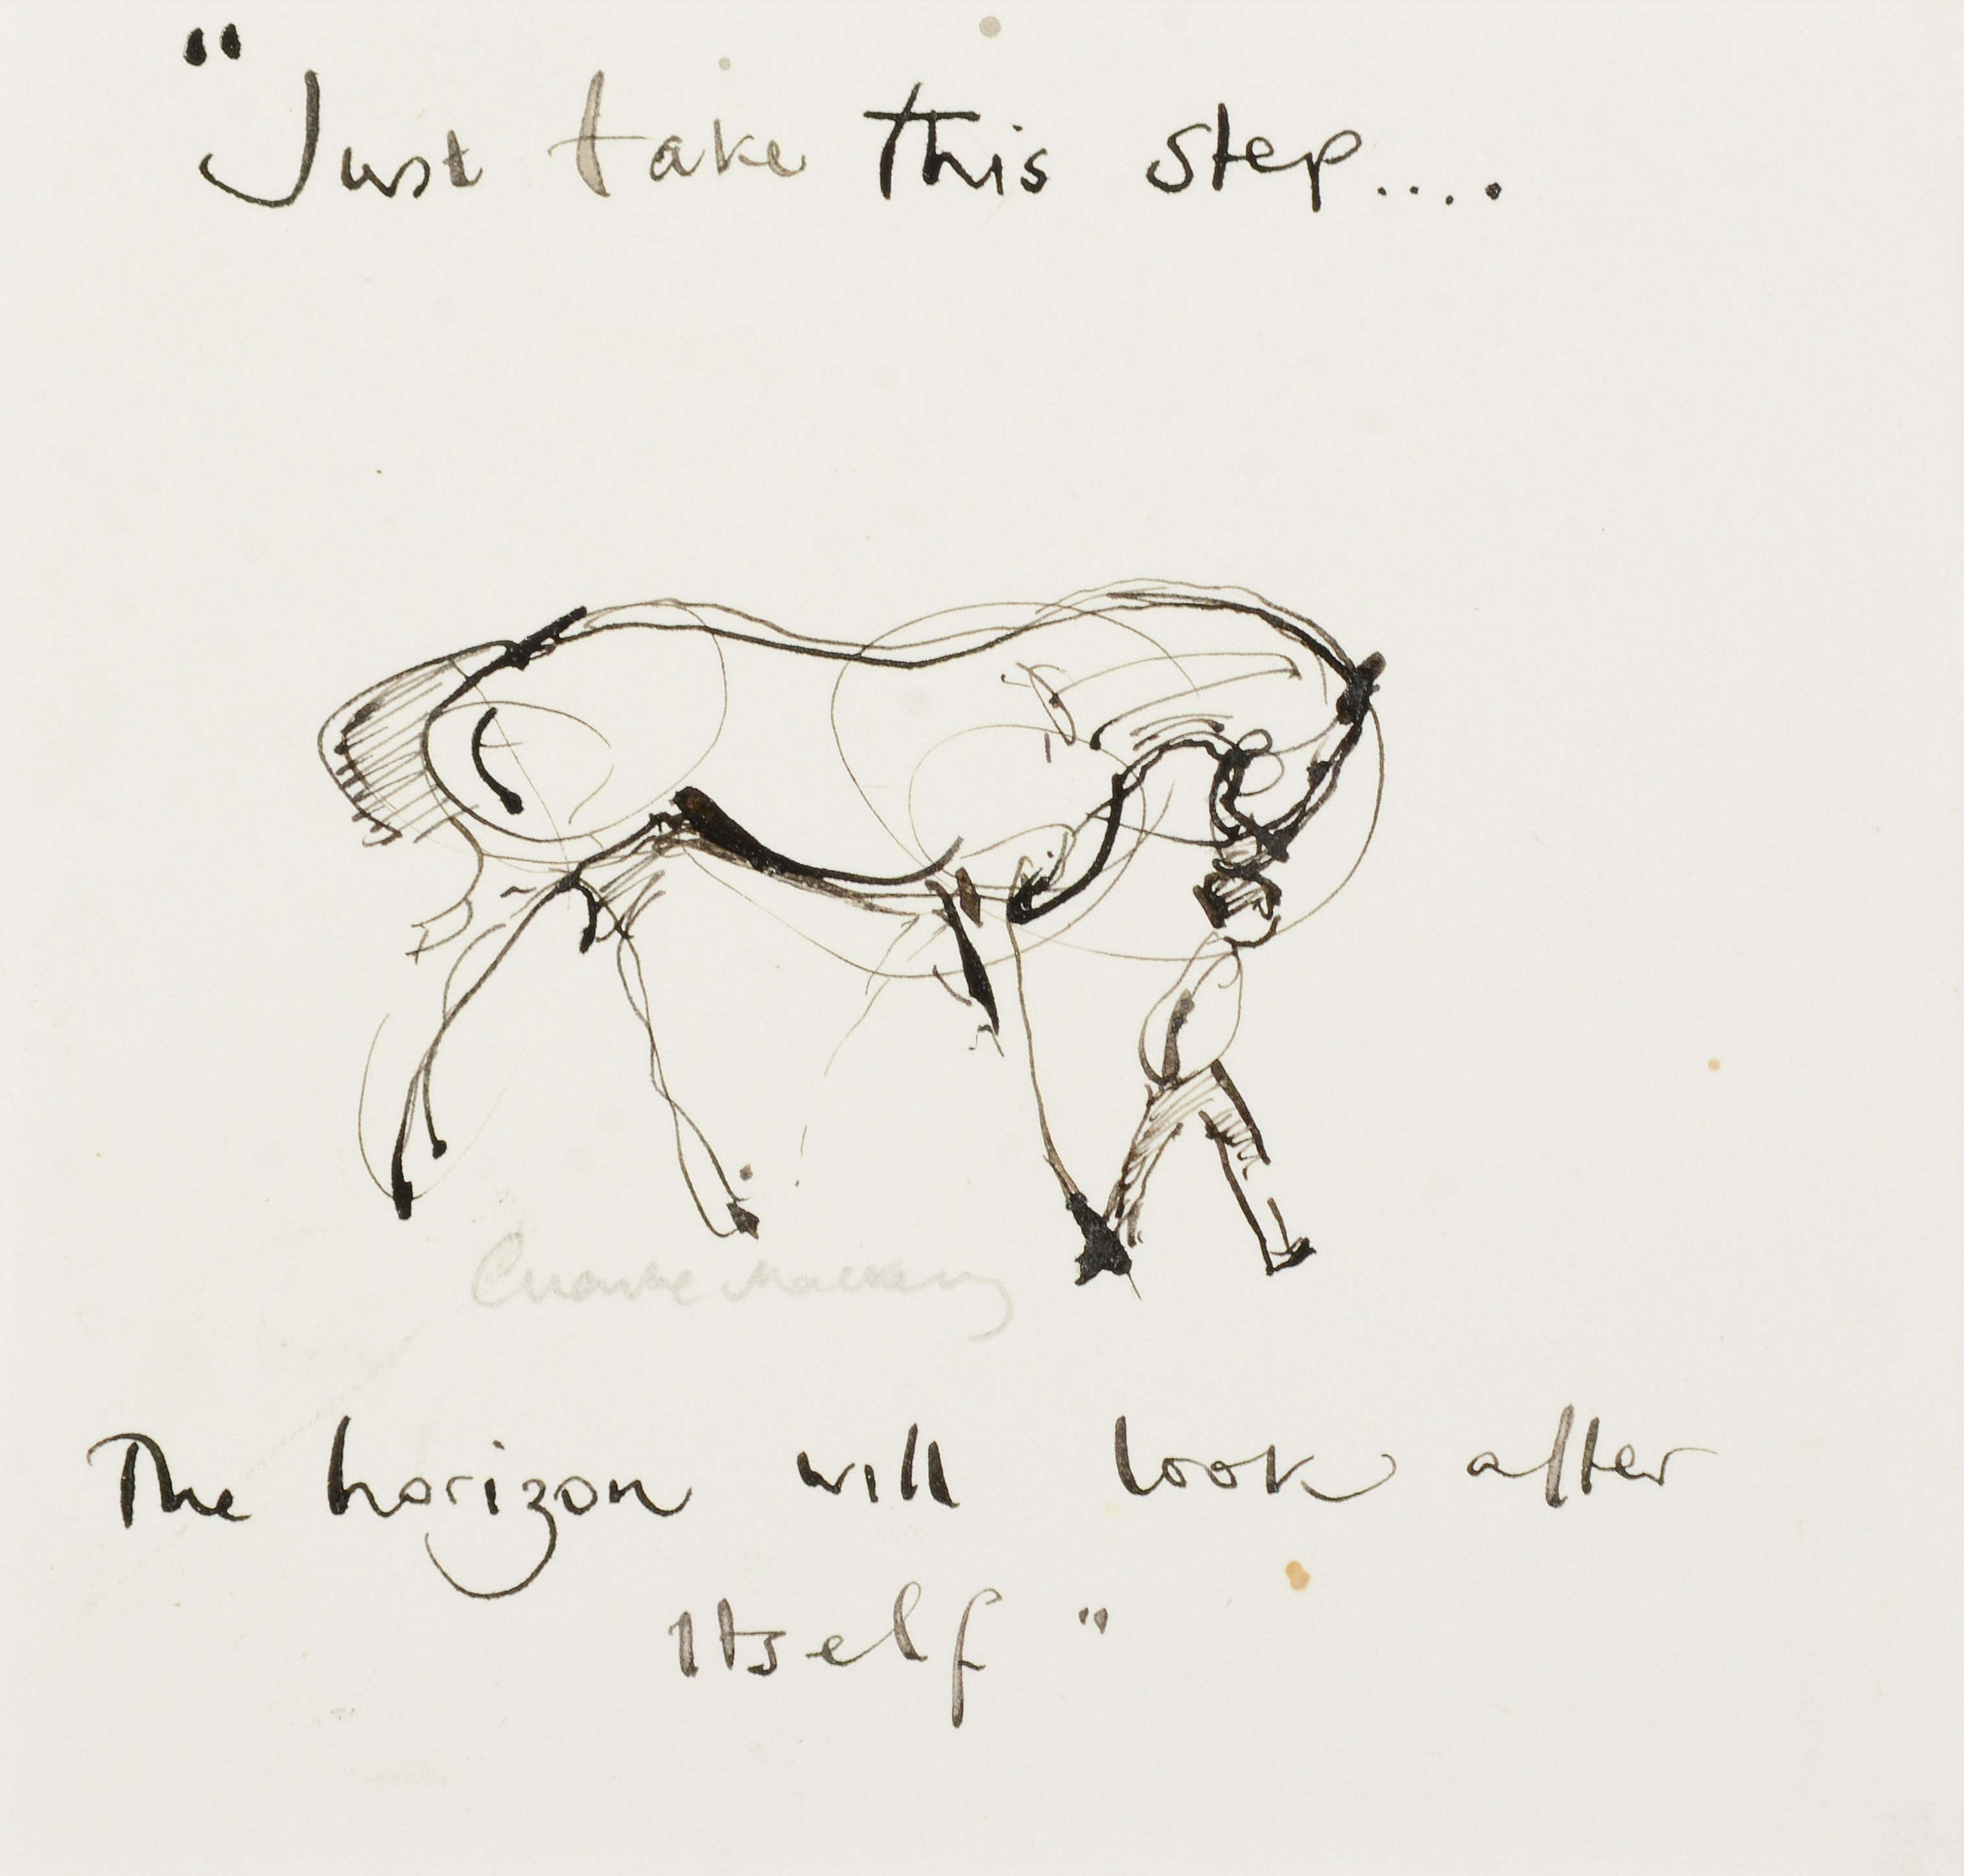 "Just take this step....
Charlie Mackesy
The horizon will look after
itself"